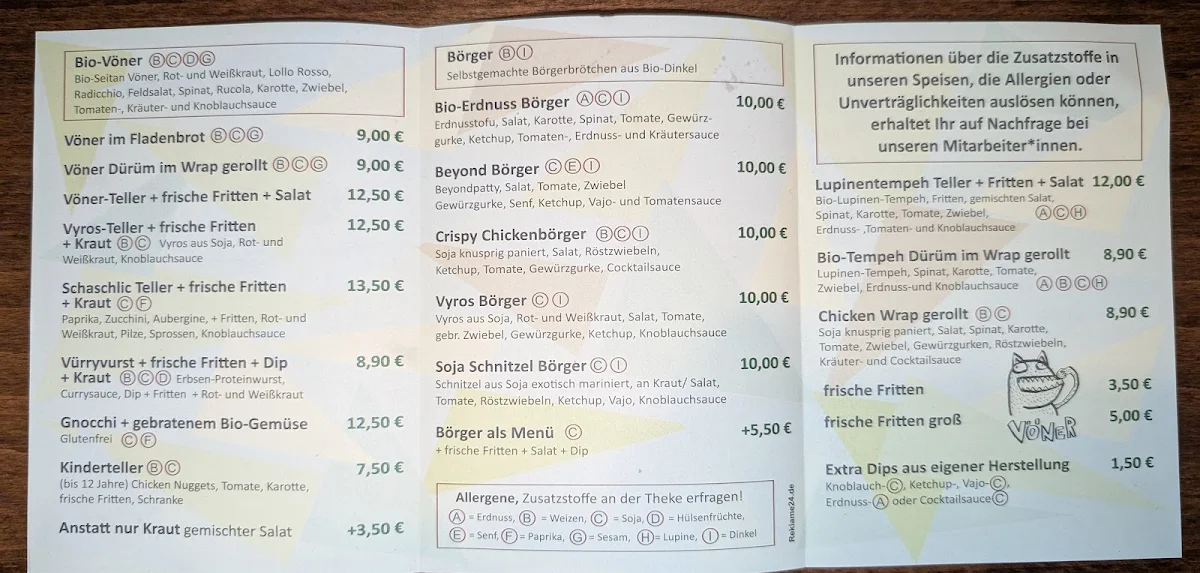 Bio-Vöner Ⓑ Ⓒ Ⓓ Ⓖ
Bio-Seitan Vöner, Rot- und Weißkraut, Lollo Rosso,
Radicchio, Feldsalat, Spinat, Rucola, Karotte, Zwiebel,
Tomaten-, Kräuter- und Knoblauchsauce
Vöner im Fladenbrot Ⓑ Ⓒ Ⓖ 9,00 €
Vöner Dürüm im Wrap gerollt Ⓑ Ⓒ Ⓖ 9,00 €
Vöner-Teller + frische Fritten + Salat 12,50 €
Vyros-Teller + frische Fritten 12,50 €
+ Kraut Ⓑ Ⓒ Vyros aus Soja, Rot- und
Weißkraut, Knoblauchsauce
Schaschlic Teller + frische Fritten 13,50 €
+ Kraut Ⓒ Ⓕ
Paprika, Zucchini, Aubergine, + Fritten, Rot- und
Weißkraut, Pilze, Sprossen, Knoblauchsauce
Vürryvurst + frische Fritten + Dip 8,90 €
+ Kraut Ⓑ Ⓒ Ⓓ Erbsen-Proteinwurst,
Currysauce, Dip + Fritten + Rot- und Weißkraut
Gnocchi + gebratenem Bio-Gemüse 12,50 €
Glutenfrei Ⓒ Ⓕ
Kinderteller Ⓑ Ⓒ 7,50 €
(bis 12 Jahre) Chicken Nuggets, Tomate, Karotte,
frische Fritten, Schranke
Anstatt nur Kraut gemischter Salat +3,50 €
Börger Ⓑ Ⓘ
Selbstgemachte Börgerbrötchen aus Bio-Dinkel
Bio-Erdnuss Börger Ⓐ Ⓒ Ⓘ 10,00 €
Erdnusstofu, Salat, Karotte, Spinat, Tomate, Gewürz-
gurke, Ketchup, Tomaten-, Erdnuss- und Kräutersauce
Beyond Börger Ⓒ Ⓔ Ⓘ 10,00 €
Beyondpatty, Salat, Tomate, Zwiebel
Gewürzgurke, Senf, Ketchup, Vajo- und Tomatensauce
Crispy Chickenbörger Ⓑ Ⓒ Ⓘ 10,00 €
Soja knusprig paniert, Salat, Röstzwiebeln,
Ketchup, Tomate, Gewürzgurke, Cocktailsauce
Vyros Börger Ⓒ Ⓘ 10,00 €
Vyros aus Soja, Rot- und Weißkraut, Salat, Tomate,
gebr. Zwiebel, Gewürzgurke, Ketchup, Knoblauchsauce
Soja Schnitzel Börger Ⓒ Ⓘ 10,00 €
Schnitzel aus Soja exotisch mariniert, an Kraut/ Salat,
Tomate, Röstzwiebeln, Ketchup, Vajo, Knoblauchsauce
Börger als Menü Ⓒ +5,50 €
+ frische Fritten + Salat + Dip
Allergene, Zusatzstoffe an der Theke erfragen!
Ⓐ = Erdnuss, Ⓑ = Weizen, Ⓒ = Soja, Ⓓ = Hülsenfrüchte,
Ⓔ = Senf, Ⓕ = Paprika, Ⓖ = Sesam, Ⓗ = Lupine, Ⓘ = Dinkel
Reklame24.de
Informationen über die Zusatzstoffe in
unseren Speisen, die Allergien oder
Unverträglichkeiten auslösen können,
erhaltet Ihr auf Nachfrage bei
unseren Mitarbeiter*innen.
Lupinentempeh Teller + Fritten + Salat 12,00 €
Bio-Lupinen-Tempeh, Fritten, gemischten Salat,
Spinat, Karotte, Tomate, Zwiebel, Ⓐ Ⓒ Ⓗ
Erdnuss- ,Tomaten- und Knoblauchsauce
Bio-Tempeh Dürüm im Wrap gerollt 8,90 €
Lupinen-Tempeh, Spinat, Karotte, Tomate,
Zwiebel, Erdnuss-und Knoblauchsauce Ⓐ Ⓑ Ⓒ Ⓗ
Chicken Wrap gerollt Ⓑ Ⓒ 8,90 €
Soja knusprig paniert, Salat, Spinat, Karotte,
Tomate, Zwiebel, Gewürzgurken, Röstzwiebeln,
Kräuter- und Cocktailsauce
frische Fritten 3,50 €
frische Fritten groß 5,00 €
VÖNER
Extra Dips aus eigener Herstellung 1,50 €
Knoblauch-Ⓒ, Ketchup-, Vajo-Ⓒ,
Erdnuss-Ⓐ oder CocktailsauceⒸ